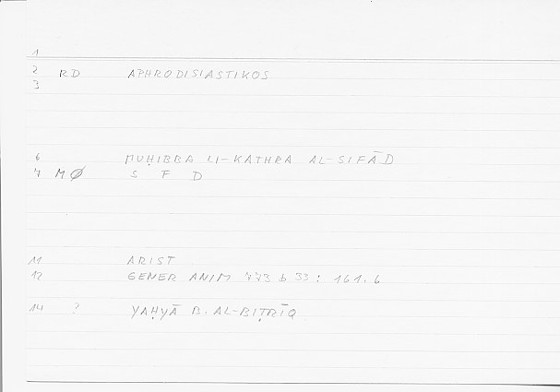 1
2 RD APHRODISIASTIKOS
3
6 MUḤIBBA LI-KATHRA AL-SIFĀD
7 MØ S F D
11 ARIST
12 GENER ANIM 773 b 33 : 161.6
14 ? YAḤYĀ B. AL-BIṬRĪQ